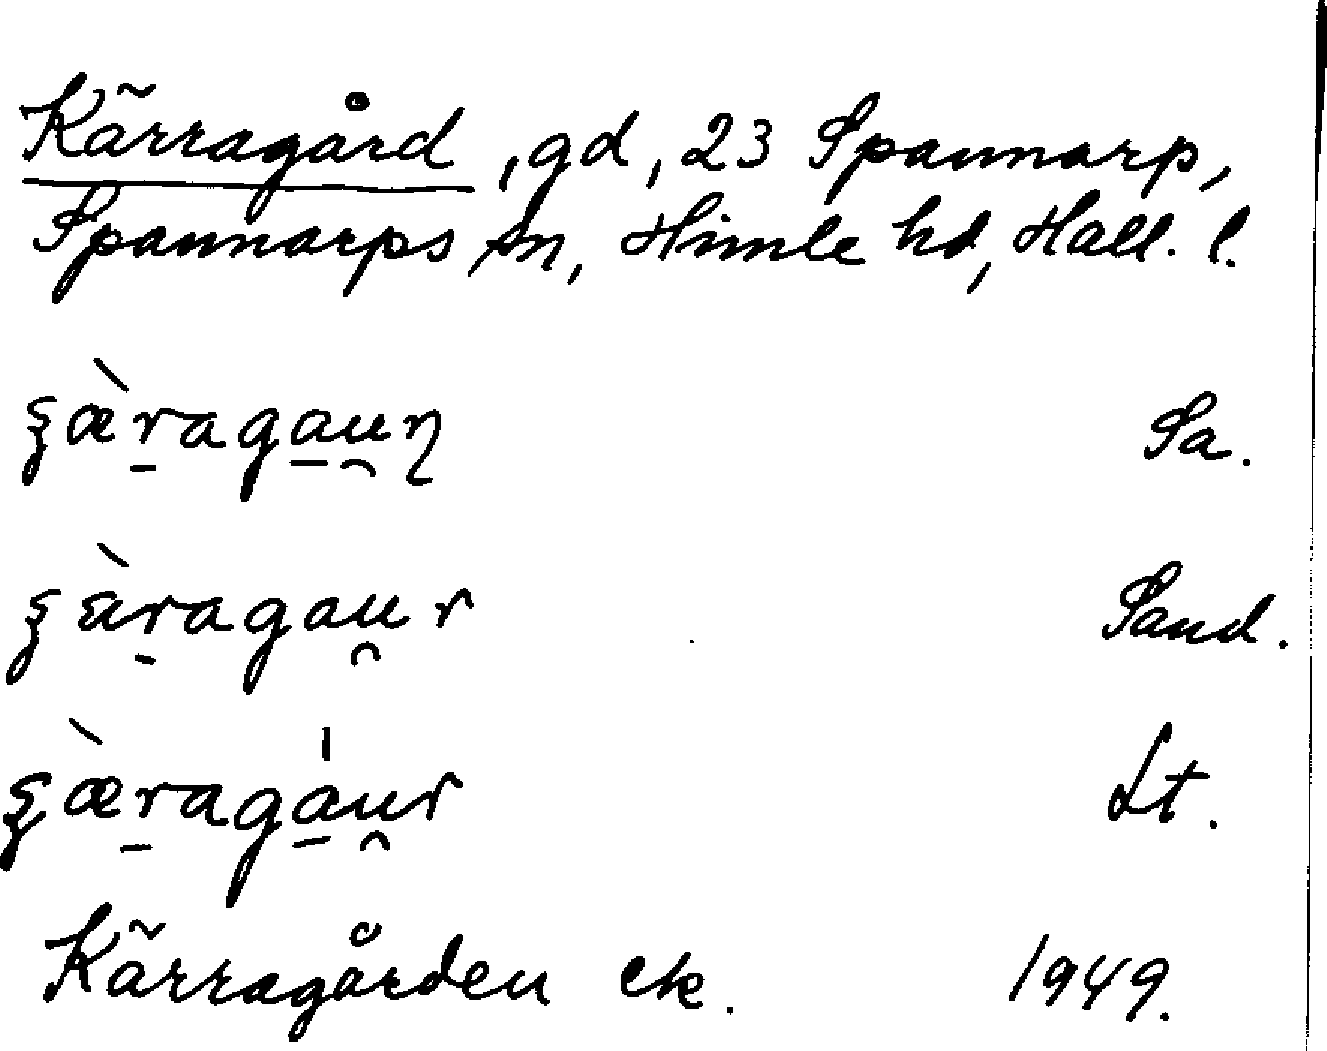 Kärragård, gd, 23 Spannarp,
Spannarps sn, Himle hd, Hall. l.
ʂæ̀r̠aga̠u̯ɳ Sa.
ʂὰr̠agau̯r Sand.
ʂæ̀r̠agá̠u̯r Lt.
Kärragården ek. 1949.